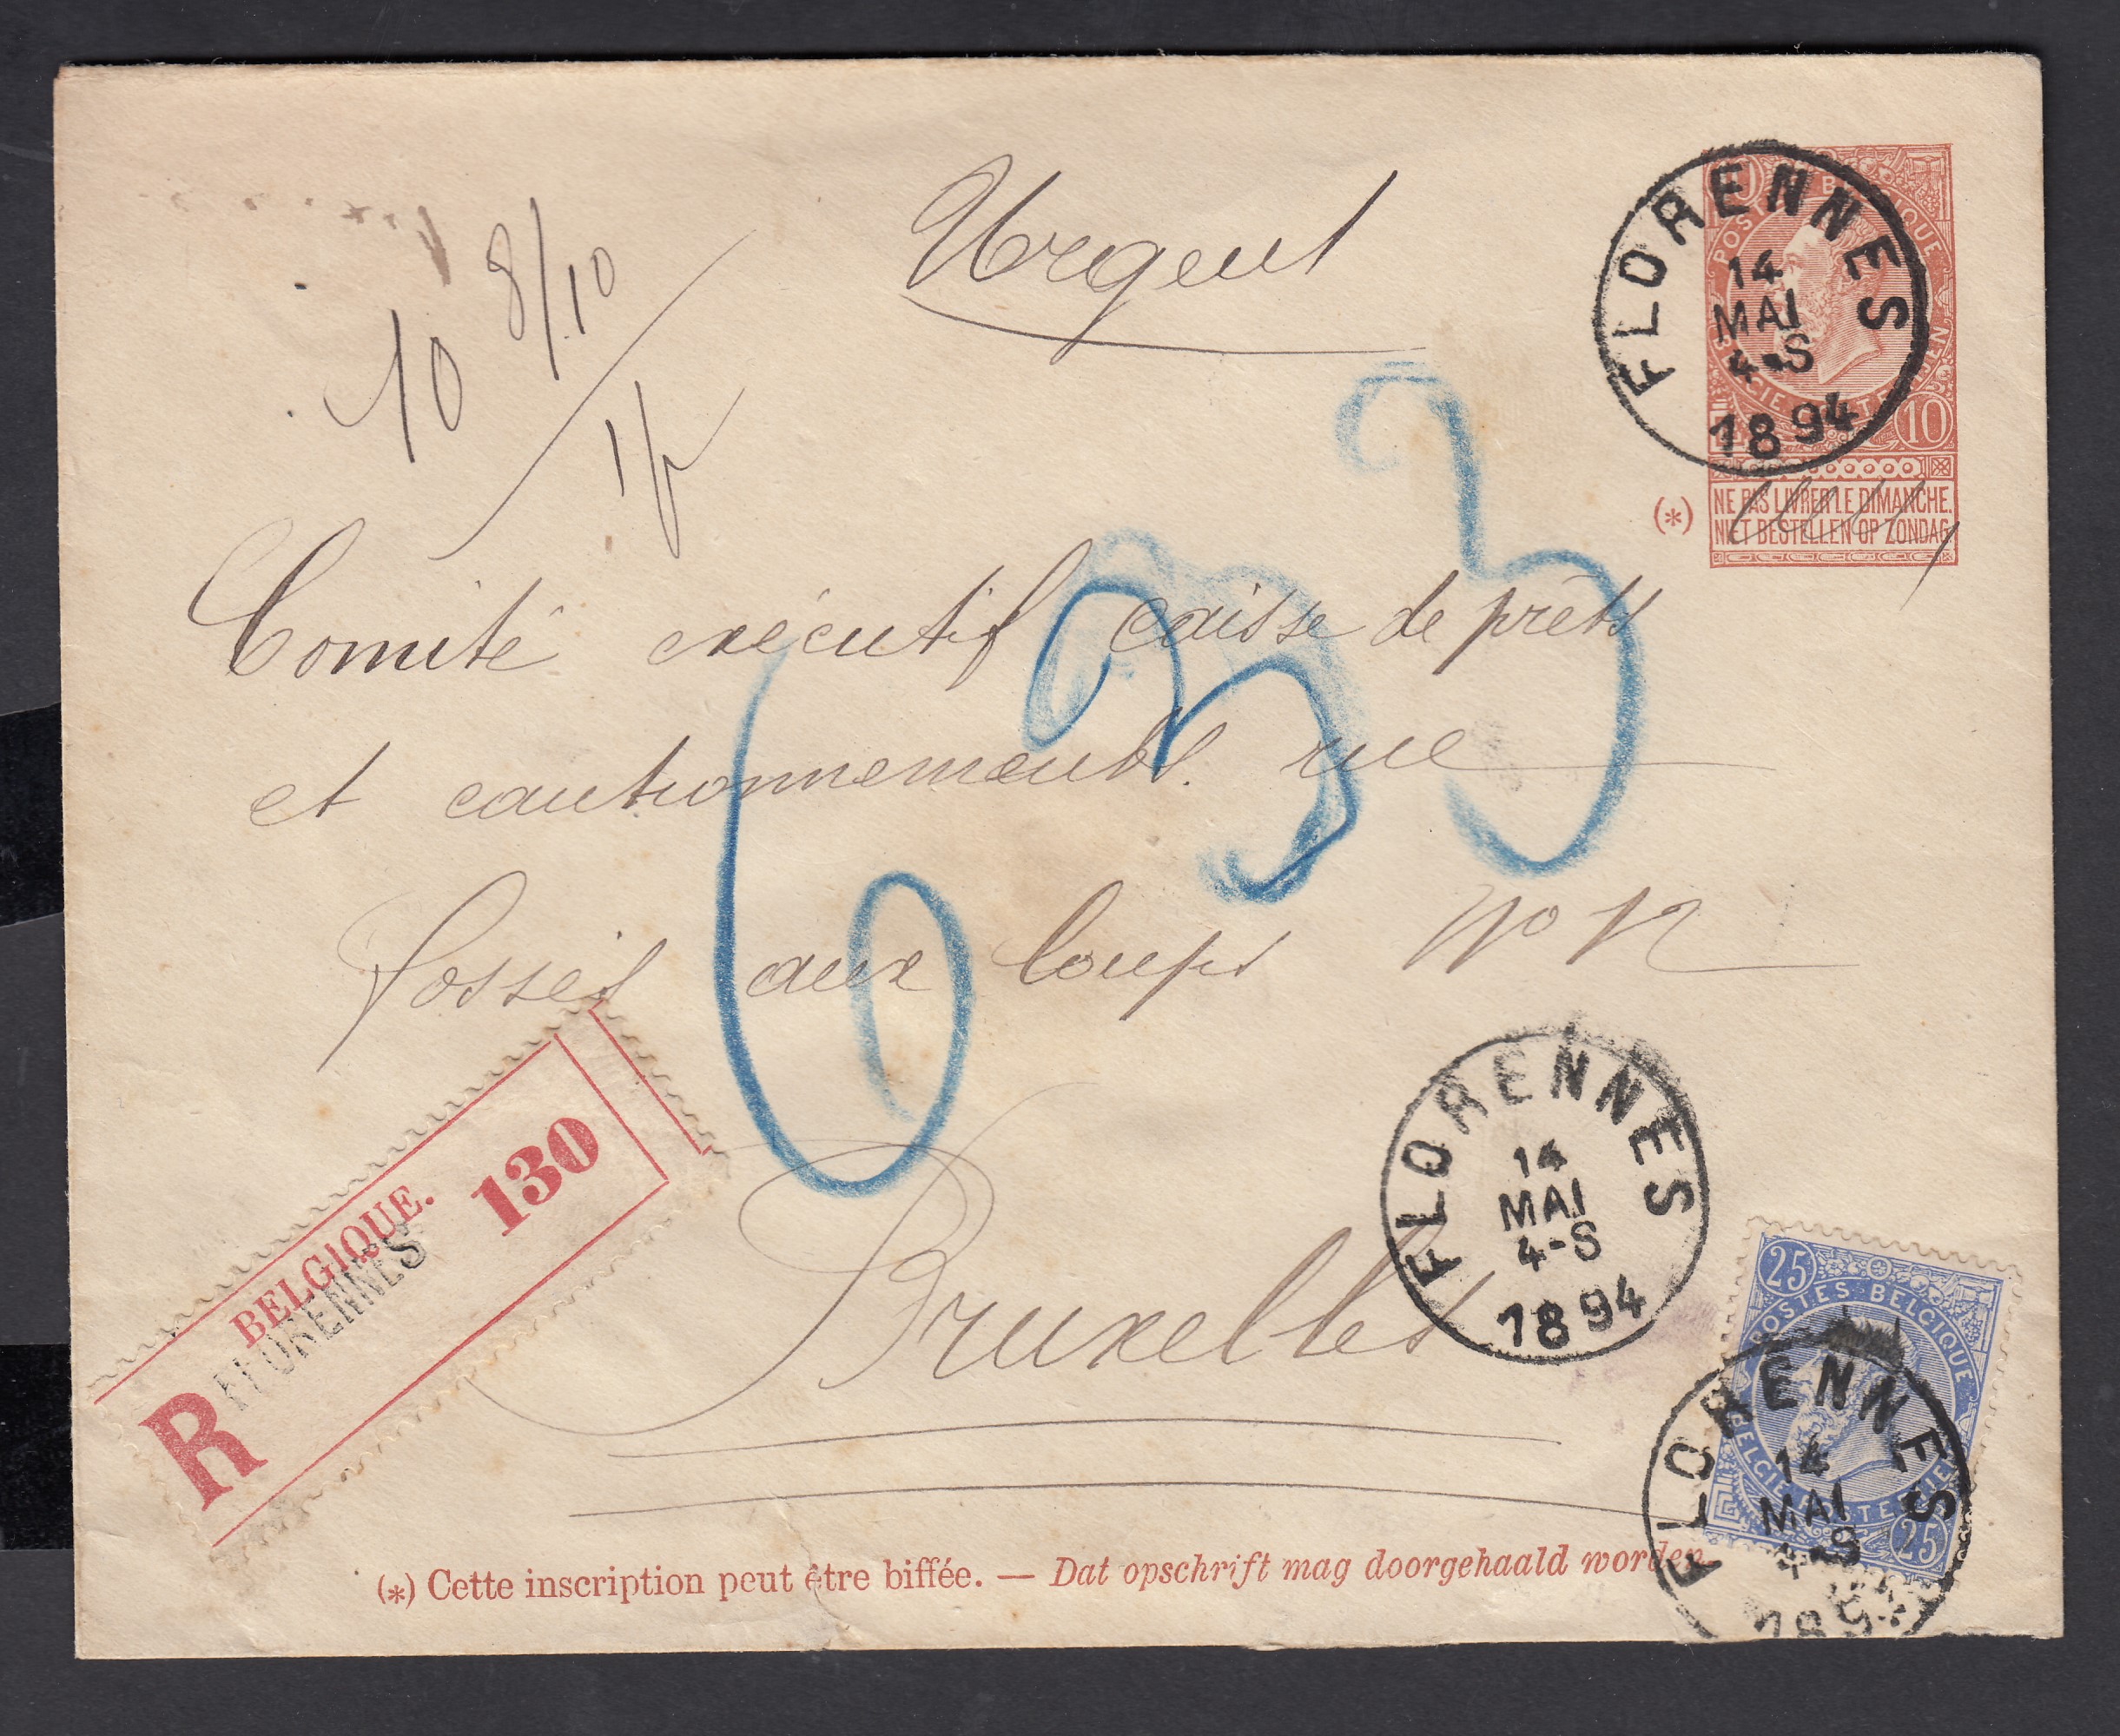 Urgent
10 8/10
FLORENNES
14
MAI
4-S
1894
10
POSTES BELGIQUE
BELGIE POSTERIJEN
10
(*)
NE PAS LIVRER LE DIMANCHE.
NIET BESTELLEN OP ZONDAG.
633
Comité exécutif caisse de prêts
et cautionnements. rue
fossés aux loups No 12
Bruxelles
R
BELGIQUE.
130
FLORENNES
FLORENNES
14
MAI
4-S
1894
25
POSTES BELGIQUE
BELGIE POSTERIJEN
25
FLORENNES
14
MAI
4-S
189
(*) Cette inscription peut être biffée. — Dat opschrift mag doorgehaald worden.